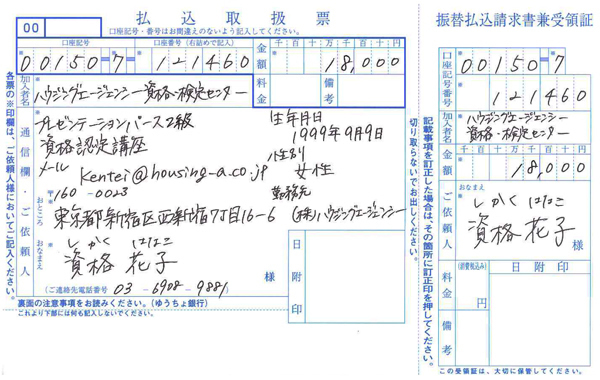 00
払込取扱票
口座番号・番号はお間違えのないよう記入してください。
口座記号
口座番号（右詰めで記入）
00150-7-121460
金額
千百十万千百十円
18,000
加入者名
ハウジングエージェンシー資格・検定センター
料金
備考
通信欄・ご依頼人
プレゼンテーションパース2級
資格認定講座
メール
kentei@housing-a.co.jp
生年月日
1999年9月9日
性別
女性
勤務先
(株)ハウジングエージェンシー
おところ
〒160-0023
東京都新宿区西新宿7丁目16-6
おなまえ
しかく はなこ
資格 花子
様
（ご連絡先電話番号 03-6908-9881
日附印
裏面の注意事項をお読みください。（ゆうちょ銀行）
これより下部には何も記入しないでください。
各票の※印欄は、ご依頼人様においてご記入ください。
切り取らないでお出しください。
記載事項を訂正した場合は、その箇所に訂正印を押してください。
振替払込請求書兼受領証
口座記号番号
00150-7
121460
加入者名
ハウジングエージェンシー
資格・検定センター
金額
千百十万千百十円
18,000
ご依頼人
おなまえ
しかく はなこ
資格 花子
様
料金
（消費税込み）
円
日附印
備考
この受領証は、大切に保管してください。